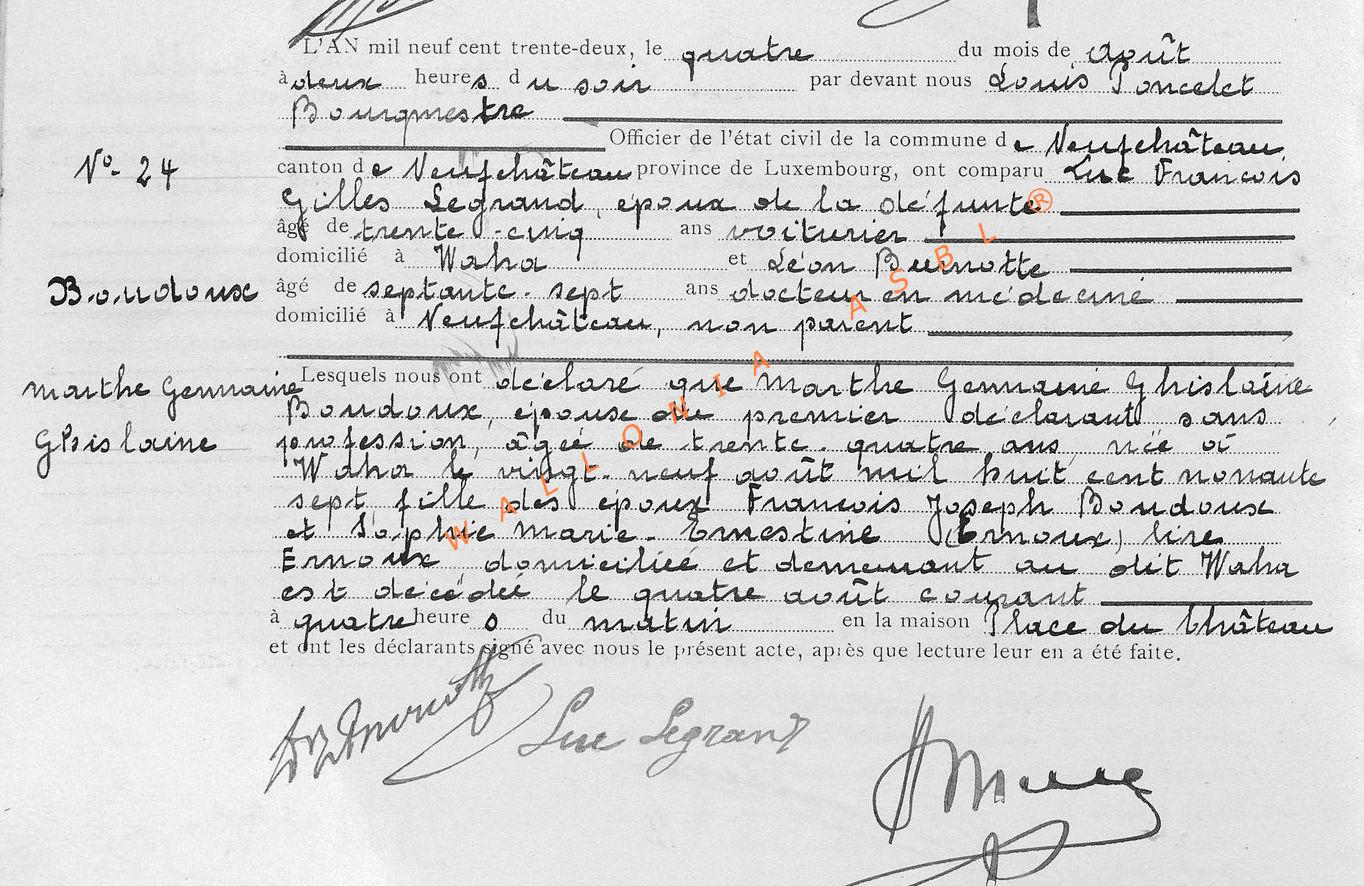 L'AN mil neuf cent trente-deux, le quatre du mois de Août
à deux heures du soir par devant nous Louis Poncelet
Bourgmestre
Officier de l'état civil de la commune de Neufchâteau
N° 24
canton de Neufchâteau province de Luxembourg, ont comparu Luc François
Gilles Legrand, époux de la défunte
âgé de trente-cinq ans voiturier
domicilié à Waha et Léon Burnotte
Boudoux
âgé de septante-sept ans docteur en médecine
domicilié à Neufchâteau, non parent
Marthe Germaine
Ghislaine
Lesquels nous ont déclaré que Marthe Germaine Ghislaine
Boudoux, épouse du premier déclarant sans
profession, âgée de trente-quatre ans, née à
Waha le vingt-neuf août mil huit cent nonante
sept fille des époux François Joseph Boudoux
et Sophie Marie-Ernestine (Ernoux) lire
Ernoux domiciliée et demeurant au dit Waha
est décédée le quatre août courant
à quatre heures du matin en la maison Place du Château
et ont les déclarants signé avec nous le présent acte, après que lecture leur en a été faite.
Luc Legrand
WALLONIA ASBL ®